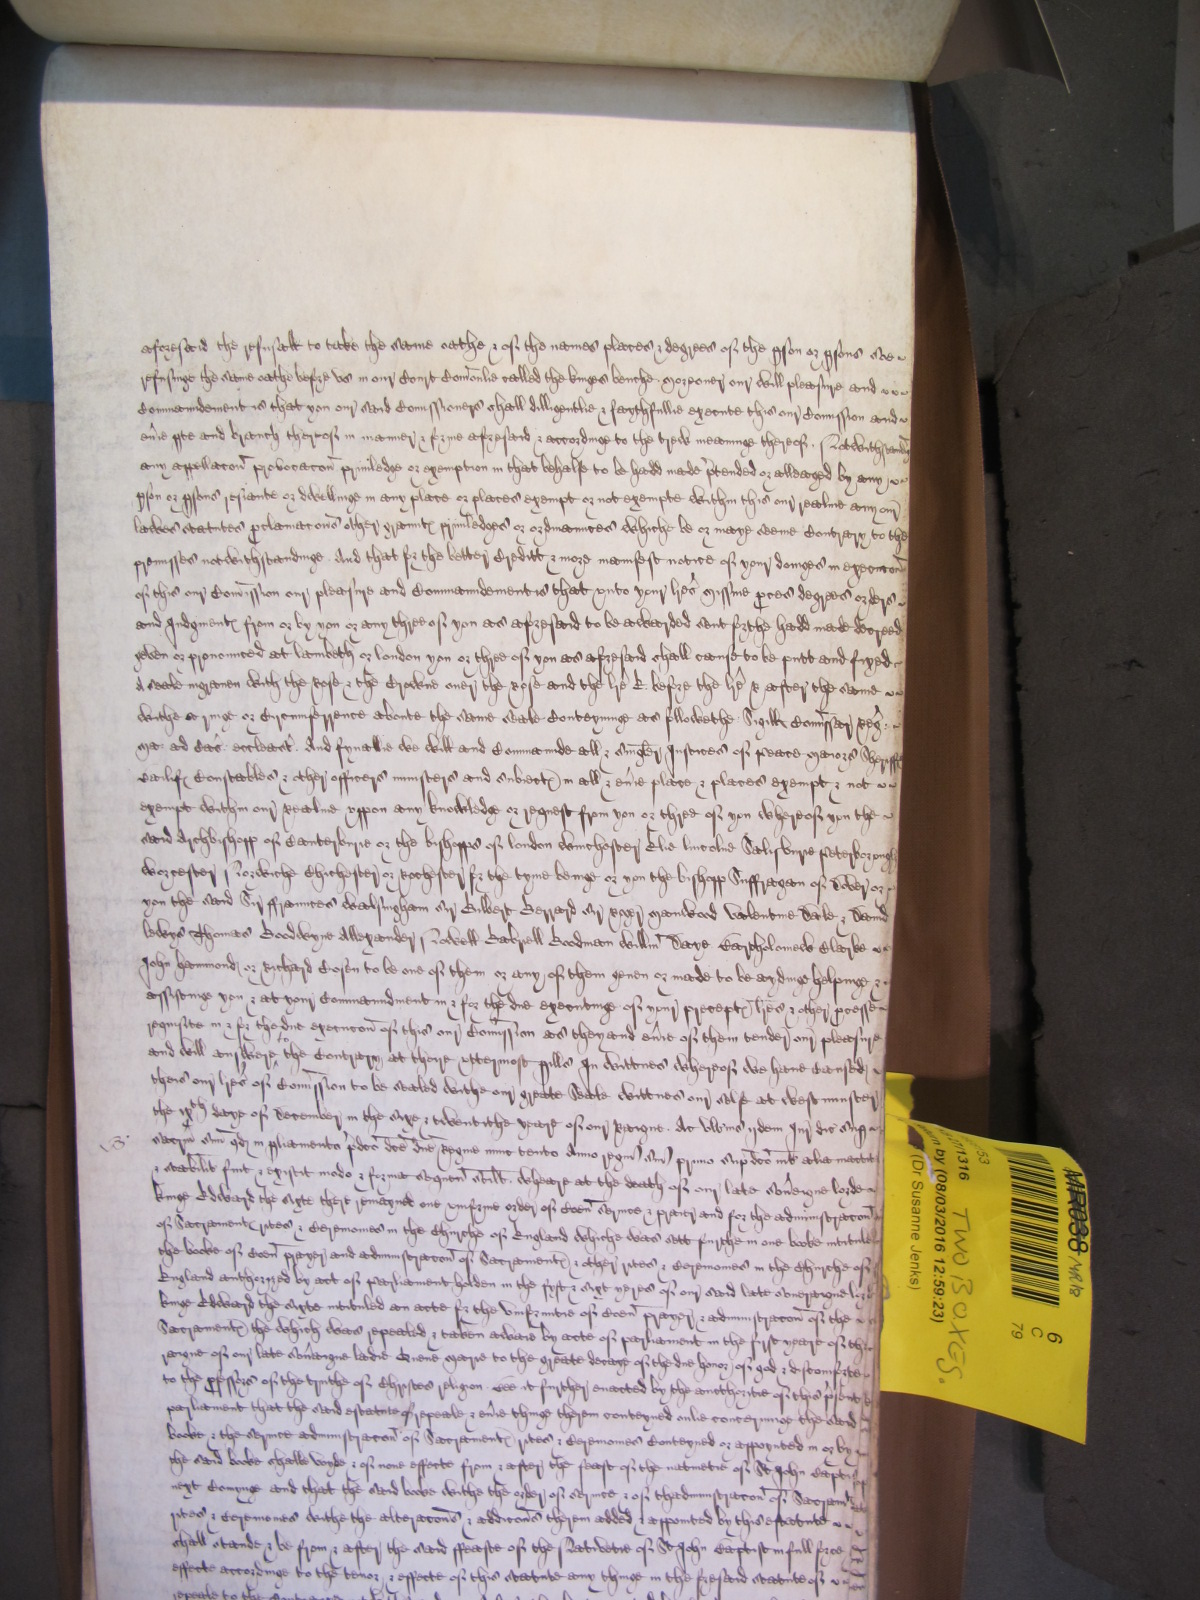 aforesaid the refusall to take the same oathe & of the names places & degrees of the pson or psons soe
refusinge the same oathe before us in our Court Comonlie called the kinges benche. Moreover our will pleasure and
Commaundement is that you our said Comissioners shall dilligentlie & faythfullie execute this our Comission and
evie pte and branch therof in manner & forme aforesaid & accordinge to the trew meaninge therof. Notwithstandinge
any appellacon provocacon priviledge or exemption in that behalfe to be hadd made ptended or alleaged by any
pson or psons resiante or dwellinge in any place or places exempt or not exempte within this our realme any our
lawes statutes pclamacons other graunts priviledges or ordinaunces whiche be or maye seeme Contrary to the
premisses notwithstandinge. And that for the better Creditt & more manifest notice of your doinges in execucon
of this our Comission our pleasure and Commaundement is that unto your lres missive pces degrees orders
and Judgments from or by you or any three of you as aforesaid to be awarded sent forthe hadd made decreed
geven or pronounced at lambeth or london you or three of you as aforesaid shall cause to be putt and fixed
a seale ingraven with the Rose & the Crowne over the Rose and the lre E. before the lre R after the same
withe a ringe or Circumferrence aboute the same seale Conteyninge as followethe Sigill Comissar Reg:
ma: ad Cas: ecclesast. And fynallie we will and Commaunde all & singler Justices of Peace Maiors Sheriffs
Bailifs Constables & other officers ministers and subiects in all & evie place & places exempt & not
exempt within our Realme uppon any knowledge or request from you or three of you wherof you the
said Archbishopp of Canterburie or the bishopps of london winchester Elie lincolne Salisburie Peterborough
worcester Norwiche Chichester or Rochester for the tyme beinge or you the bishopp Suffragan of Dover or
you the said Sir ffraunces walsingham Sir Gilbert Gerrard Sir Roger Manwood Valentine Dale & David
lewys Thomas Goodwyne Allexander Nowell Gabriell Goodman willm Daye Bartholomew Clarke
John hammond, or Richard Cosen to be one of them or any of them geven or made to be aydinge helpinge &
assistinge you & at your Commaundment in & for the due executinge of your precepts lres & other processe
requisite in & for the due execucon of this our Comission as they and evie of them tender our pleasure
and will answere to the Contrary at there uttermost pills In wittnes wherof we have Caused
theis our lres of Comission to be sealed withe our greate Seale wittnes our selfe at westminster
the ixth daye of December in the sixe & twentithe yeare of our Raigne. Ac
kinge Edward the sixt there remayned one uniforme order of Coen service & praier and for the administracon
of Sacraments rites & Ceremones in the Churche of England whiche was sett furthe in one booke intituled
the booke of Coen prayer and administracon of Sacraments & other rites & Ceremones in the Churche of
England authorized by act of Parliament holden in the fyrst & sixt yeres of our said late soveraigne lord
kinge Edward the sixte intituled an acte for the Uniformitie of Coen prayer & administracon of the
Sacraments the which was repealed & taken awaie by acte of parliament in the first yeare of the
raigne of our late soveraigne ladie Quene Marie to the greate decaye of the due honor of god & discomforte
to the pfessors of the truthe of Christes religion. Be it further enacted by the aucthoritie of this psente
parliament that the said estatute of repeale & evie thinge therin conteyned onlie concerninge the said
booke & the service administracon of Sacraments rites & Ceremones Conteyned or appoynted in or by
the said booke shalbe voyde & of none effecte from & after the feast of the nativitie of St John Baptist
next Cominge and that the said booke withe the order of service & of thadministracon of Sacraments
rites & Ceremones withe the alteracons & addicons therin added & appointed by this estatute
shall stande & be from & after the said ffeaste of the Nativitie of St John Baptist in full force
effecte accordinge to the tenor & effecte of this statute any thinge in the foresaid statute of
repeale to the
TWO BOXES.
MR038 / MR12
6
C
79
(08/03/2016 12:59:23)
(Dr Susanne Jenks)